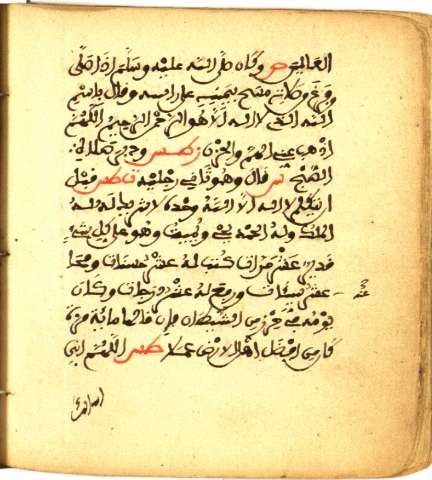 العالمين وكان صلى الله عليه وسلم إذا صلى
وفرغ من صلاته مسح بيمينه على راسه وقال باسم
الله الذي لا اله الا هو الرحمن الرحيم اللهم
اذهب عني الهم والحزن
الصبح قال وهو ثاني رجليه طس قبل
ان يتكلم لا اله الا الله وحده لا شريك له له
الملك وله الحمد يحي ويميت وهو على كل شيء
قدير عشر مرات كتب له عشر حسنات ومحا
عشر سيئات ورفع له عشر درجات وكان
عنه
يومه في حرز من الشيطان فإن قالها مائة مرة
كان من افضل اهل الارض عملا طس اللهم اني
اسالك